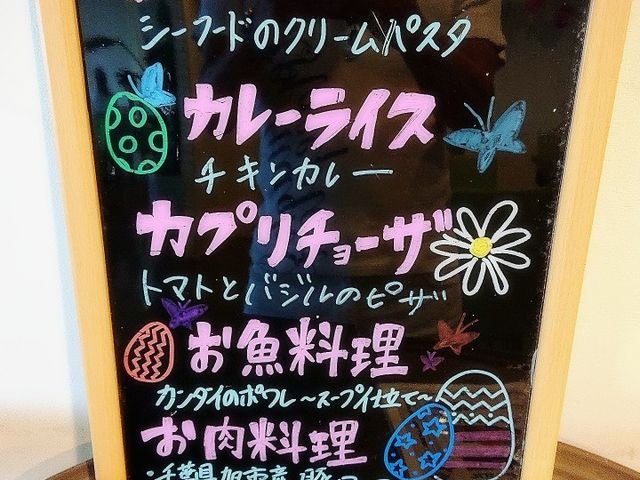 シーフードのクリームパスタ
カレーライス
チキンカレー
カプリチョーザ
トマトとバジルのピザ
お魚料理
カンダイのポワレ～スープ仕立て～
お肉料理
・千葉県旭市産 豚ロ